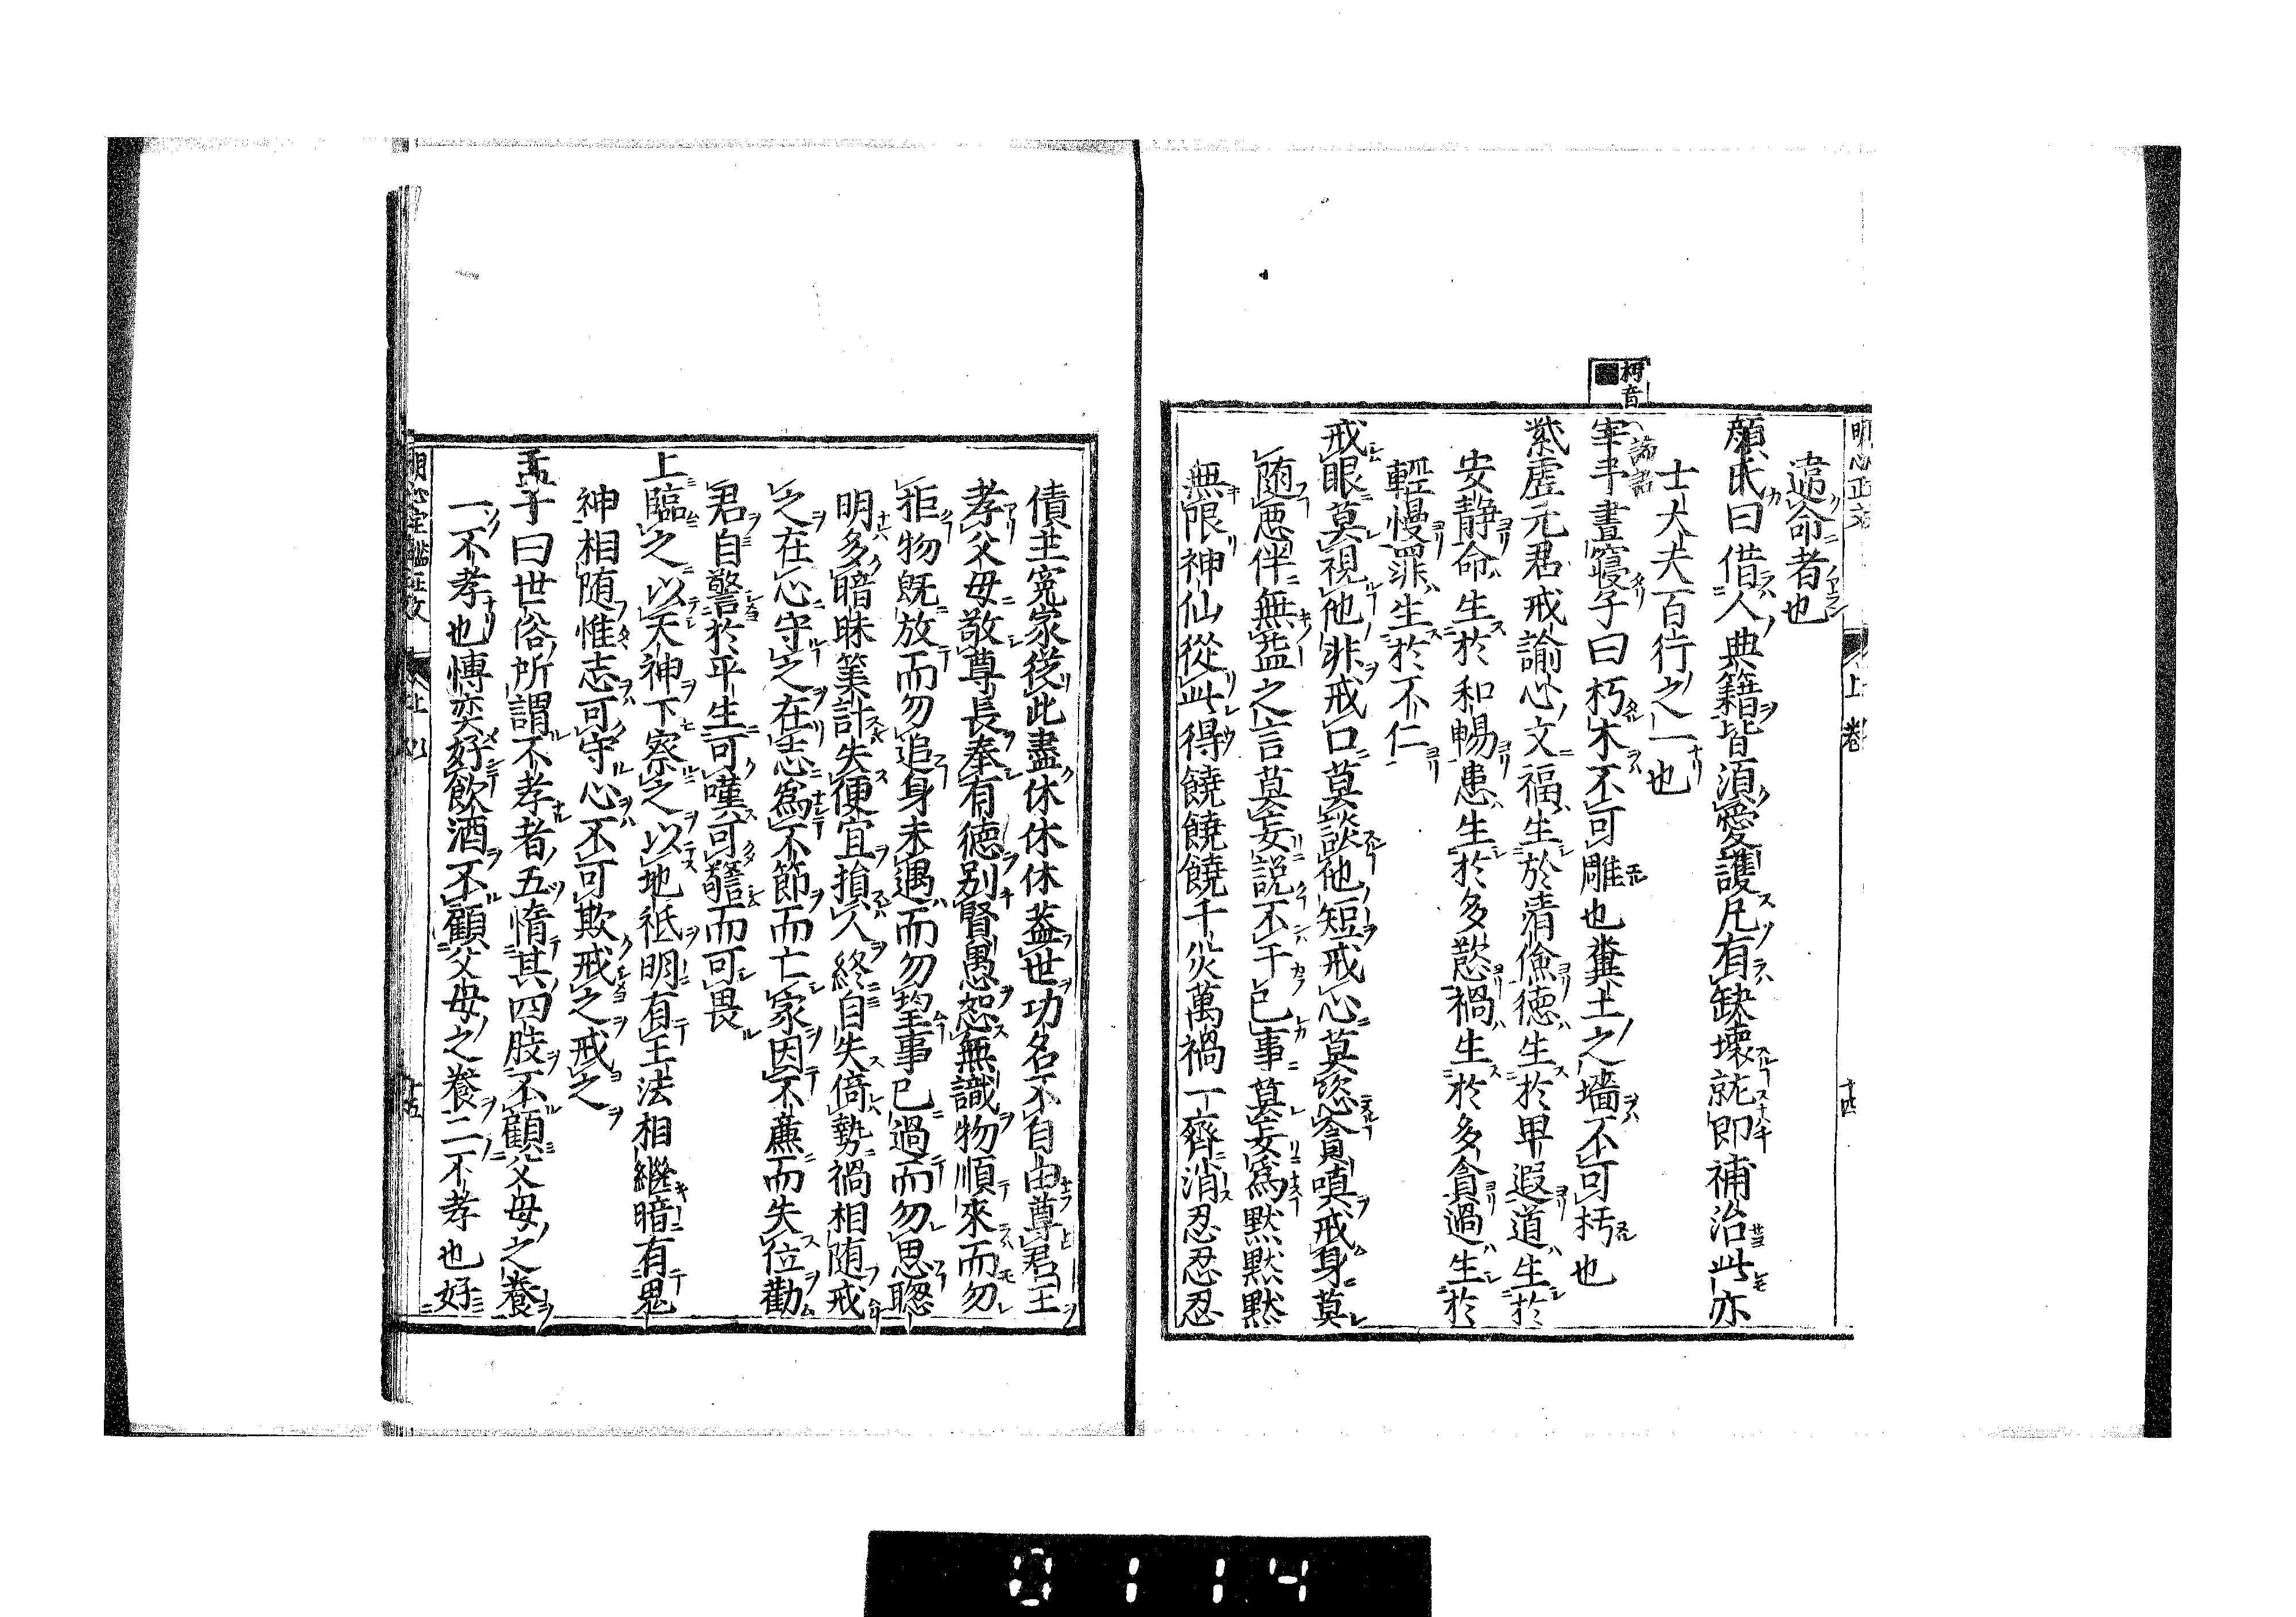 明心正文
上卷
十四
違命者也
顏氏曰借人典籍皆須愛護凡有缺壞就即補治此亦
士大夫百行之一也
朽音
論語
宰予晝寢子曰朽木不可雕也糞土之墻不可杇也
紫虛元君戒諭心文福生於清儉德生於卑退道生於
安静命生於和暢患生於多慾禍生於多貪過生於
輕慢罪生於不仁
戒眼莫視他非戒口莫談他短戒心莫恣貪嗔戒身莫
隨悪伴無益之言莫妄説不干己事莫妄爲黙黙黙
無限神仙從此得饒饒饒千災萬禍一齊消忍忍忍
債主冤家從此盡休休休蓋世功名不自由尊君王
孝父母敬尊長奉有德别賢愚恕無識物順來而勿
拒物既放而勿追身未遇而勿望事已過而勿思聰
明多暗昧筭計失便宜損人終自失倚勢禍相随戒
之在心守之在志爲不節而亡家因不廉而失位勸
君自警於平生可嘆可驚而可畏
上臨之以天神下察之以地祇明有王法相繼暗有鬼
神相随惟志可守心不可欺戒之戒之
孟子曰世俗所謂不孝者五惰其四肢不顧父母之養
一不孝也博奕好飲酒不顧父母之養二不孝也好
十五